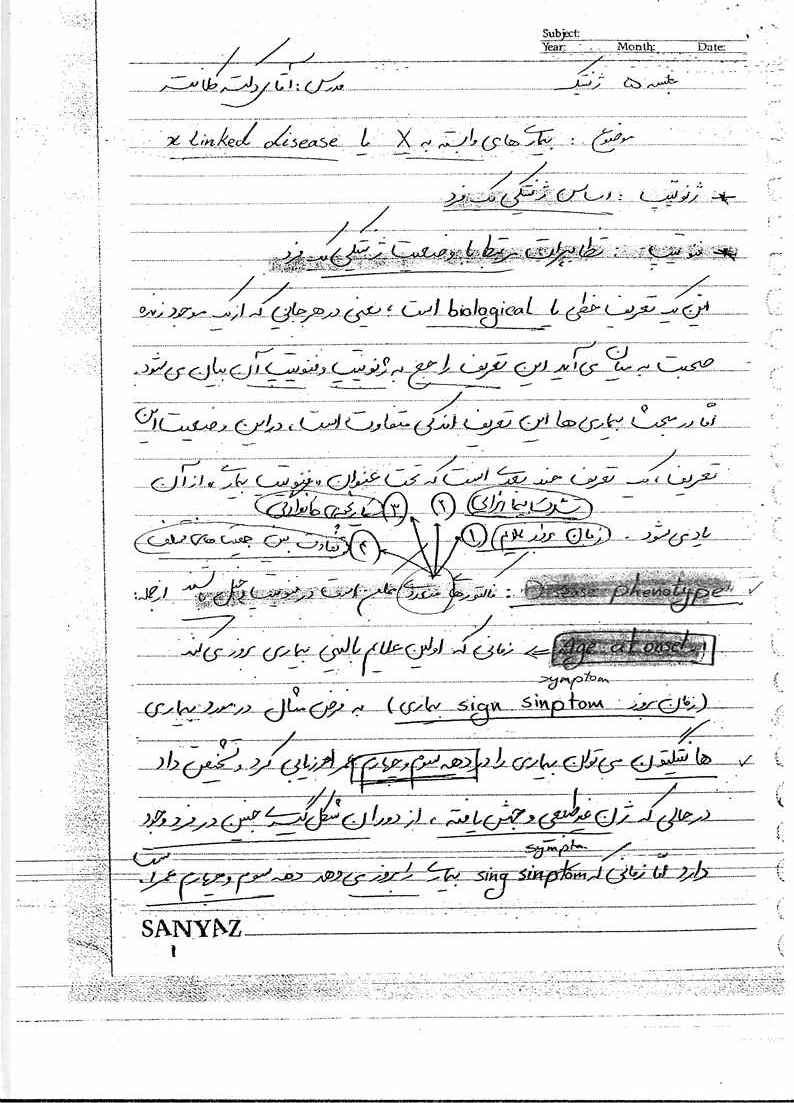 Subject:
Year: Month: Date:
جلسه ۵ ژنتیک مدرس: آقای دکتر
موضوع: بیماری های وابسته به X یا x Linked disease
* ژنوتیپ: اساس ژنتیکی یک فرد
* فنوتیپ: تظاهرات مرتبط با وضعیت ژنتیکی یک فرد
این یک تعریف خطی یا biological است، یعنی در هر جایی که از یک موجود زنده
صحبت به میان می آید این تعریف راجع به ژنوتیپ و فنوتیپ آن بیان می شود.
اما در مبحث بیماری ها این تعریف اندکی متفاوت است، در این وضعیت این
تعریف، یک تعریف چند بعدی است که تحت عنوان فنوتیپ بیماری از آن
۳ ۲ شدت
یاد می شود. زمان بروز علایم ۱ تفاوت بین جمعیت های مختلف
Disease phenotype: فاکتورهای متعددی ممکن است در از جمله:
Age at onset ← زمانی که اولین علایم بالینی بیماری بروز می کند
symptom
(زمان بروز sign sinptom بیماری) به فرض مثال در مورد بیماری
هانتیگتون می توان بیماری را در دهه سوم و چهارم عمر ارزیابی کرد و تشخیص داد
در حالی که ژن غیرطبیعی و جهش یافته، از دوران شکل گیری جنین در فرد وجود
symptm
دارد اما زمانی که sing sinptom بیماری را بروز می دهد دهه سوم و چهارم عمر
است
SANYAZ
1